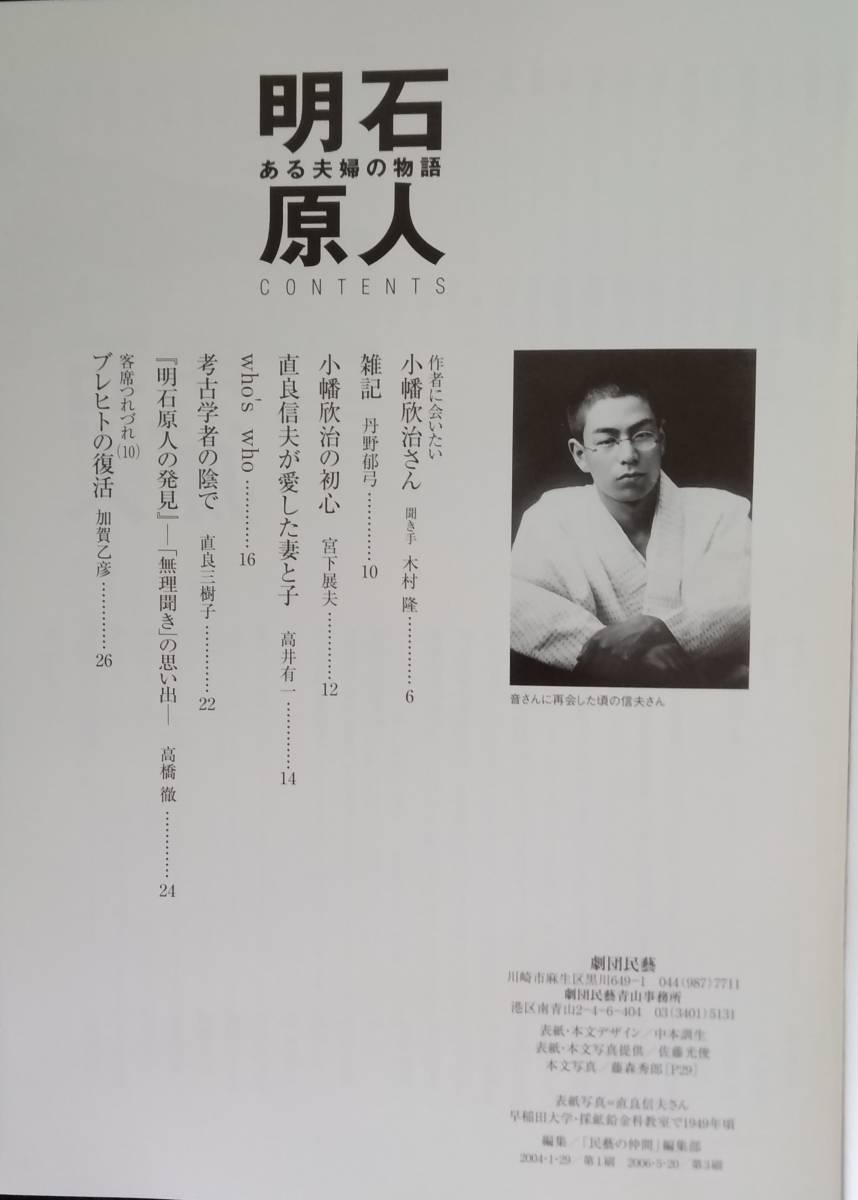 明石
ある夫婦の物語
原人
CONTENTS
作者に会いたい
小幡欣治さん 聞き手 木村 隆…………6
雑記 丹野郁弓…………10
小幡欣治の初心 宮下展夫…………12
直良信夫が愛した妻と子 高井有一…………14
who's who…………16
考古学者の陰で 直良三樹子…………22
『明石原人の発見』―「無理聞き」の思い出― 高橋 徹…………24
客席つれづれ(10)
ブレヒトの復活 加賀乙彦…………26
音さんに再会した頃の信夫さん
劇団民藝
川崎市麻生区黒川649-1 044(987)7711
劇団民藝青山事務所
港区南青山2-4-6-404 03(3401)5131
表紙・本文デザイン/中本訓生
表紙・本文写真提供/佐藤光俊
本文写真/藤森秀郎[P29]
表紙写真=直良信夫さん
早稲田大学・採鉱鉛金科教室で1949年頃
編集/「民藝の仲間」編集部
2004-1-29/第1刷 2006-5-20/第3刷